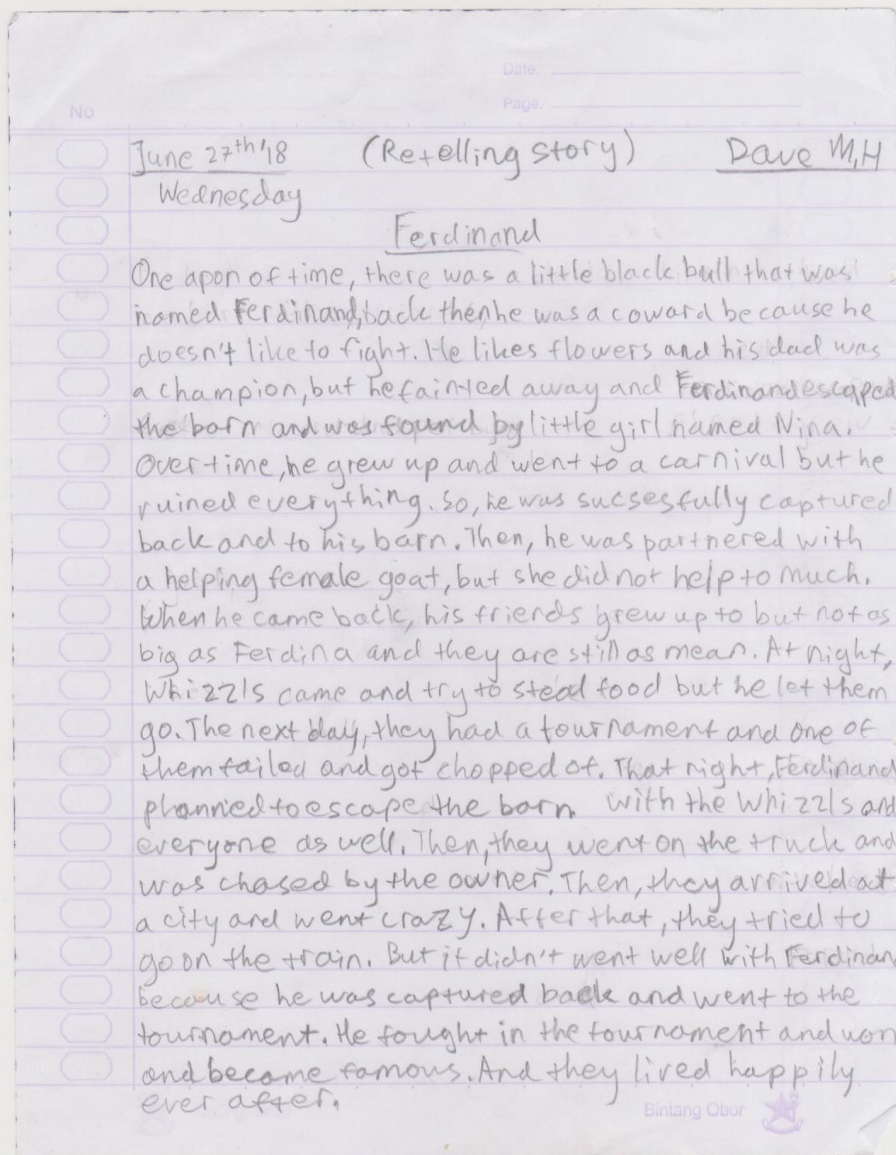 Date.
No
Page.
June 27th/18 (Retelling story) Dave M,H
Wednesday
Ferdinand
One apon of time, there was a little black bull that was
named Ferdinand, back then he was a coward because he
doesn't like to fight. He likes flowers and his dad was
a champion, but he fainted away and Ferdinand escaped
the barn and was found by little girl named Nina.
Over time, he grew up and went to a carnival but he
ruined everything. So, he was sucsesfully captured
back and to his barn. Then, he was partnered with
a helping female goat, but she did not help to much.
When he came back, his friends grew up to but not as
big as Ferdina and they are still as mean. At night,
Whizzls came and try to steal food but he let them
go. The next day, they had a tournament and one of
them failed and got chopped of. That night, Ferdinand
planned to escape the barn with the Whizzls and
everyone as well. Then, they went on the truck and
was chased by the owner. Then, they arrived at
a city and went crazy. After that, they tried to
go on the train. But it didn't went well with Ferdinan
because he was captured back and went to the
tournament. He fought in the tournament and won
and became famous. And they lived happily
ever after.
Bintang Obor